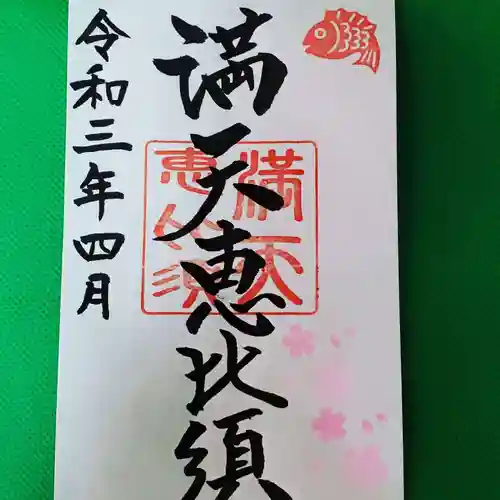 満天恵比須
令和三年四月
満天
恵比須